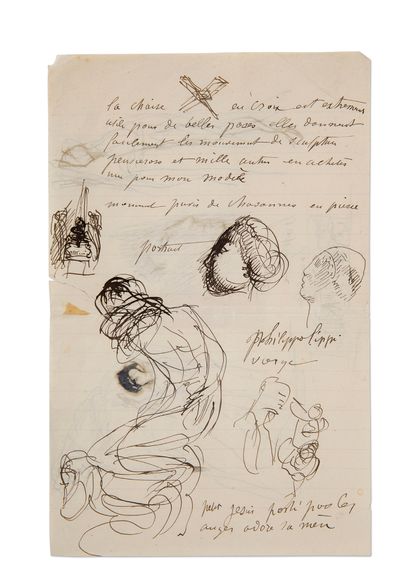 la chaise en croix est extremement
utile pour de belles poses elles donnent
facilement les mouvement de sculptur
penseroso et mille autres en acheter
une pour mon modèle
monument puvis de chavannes en pierre
portrait
philippo lippi
vierge
petit jésus porté par les
anges adore sa mère